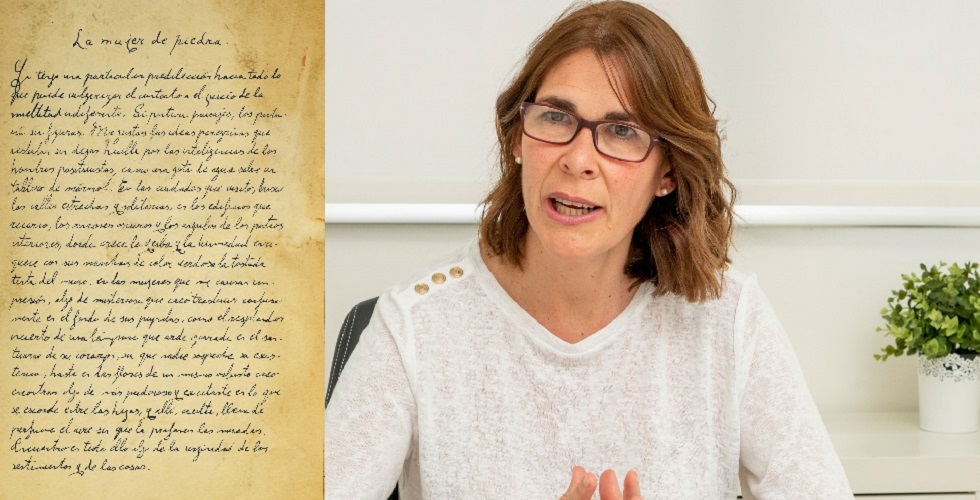 La mujer de piedra.
Yo tengo una particular predilección hacia todo lo
que puede vulgarizar el contacto o el juicio de la
multitud indiferente. Si pintara paisajes, los pinta-
ría sin figuras. Me gustan las ideas peregrinas que
resbalan sin dejar huella por las inteligencias de los
hombres positivistas, como una gota de agua sobre un
tablero de mármol. En las ciudades que visito, busco
las calles estrechas y solitarias, en los edificios que
recorro, los rincones oscuros y los ángulos de los patios
interiores, donde crece la yerba y la humedad enri-
quece con sus manchas de color verdoso la tostada
tinta del muro, en las mujeres que me causan im-
presión, algo de misterioso que creo traslucir confusa-
mente en el fondo de sus pupilas, como el resplandor
incierto de una lámpara que arde ignorada en el san-
tuario de su corazón, sin que nadie sospeche su exis-
tencia, hasta en las flores de un mismo arbusto creo
encontrar algo de más pudoroso y excitante en la que
se esconde entre las hojas, y allí, oculta, llena de
perfume el aire sin que la profanen las miradas.
Encuentro en todo ello algo de la virginidad de los
sentimientos y de las cosas.